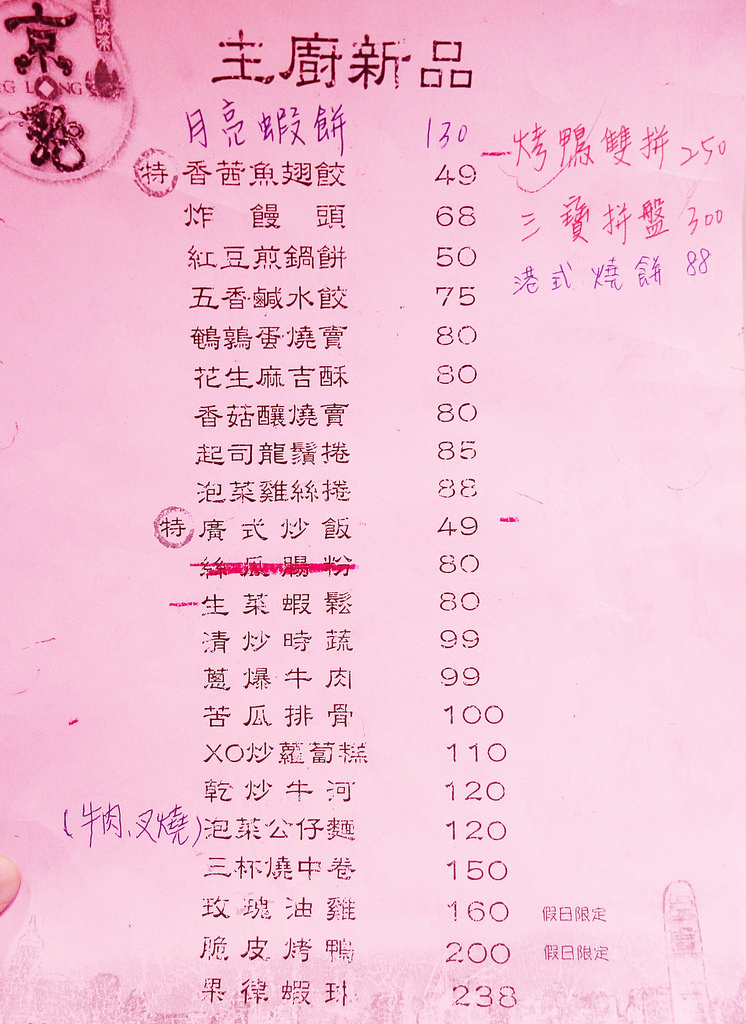 京
龍
G LONG
式飲茶
主廚新品
月亮蝦餅 130
特 香茜魚翅餃 49
炸饅頭 68
紅豆煎鍋餅 50
五香鹹水餃 75
鵪鶉蛋燒賣 80
花生麻吉酥 80
香菇釀燒賣 80
起司龍鬚捲 85
泡菜雞絲捲 88
特 廣式炒飯 49
絲瓜腸粉 80
生菜蝦鬆 80
清炒時蔬 99
蔥爆牛肉 99
苦瓜排骨 100
XO炒蘿蔔糕 110
乾炒牛河 120
(牛肉、叉燒) 泡菜公仔麵 120
三杯燒中卷 150
玫瑰油雞 160 假日限定
脆皮烤鴨 200 假日限定
果律蝦球 238
烤鴨雙拼 250
三寶拼盤 300
港式燒餅 88